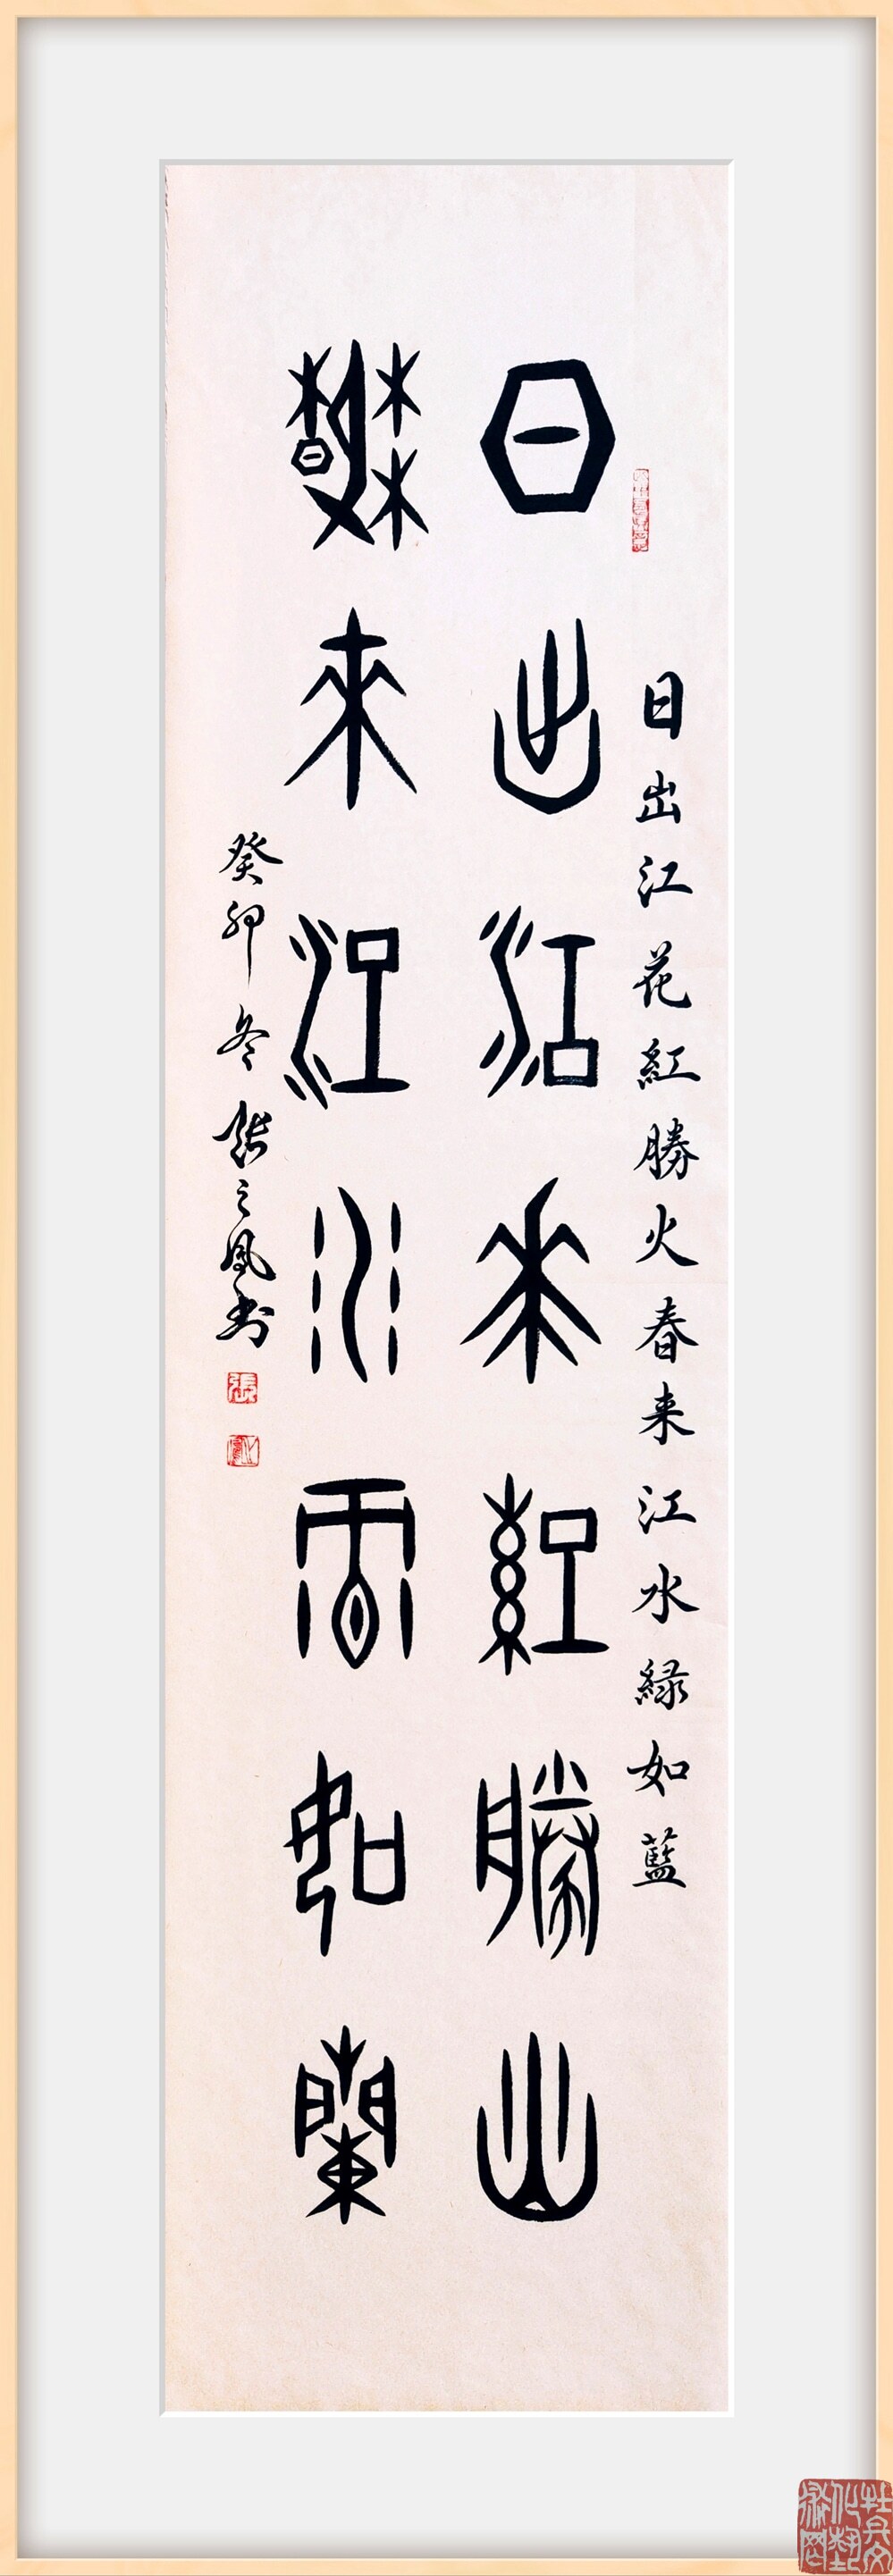 日出江花紅勝火春来江水緑如藍
日出江花紅勝火
春來江水綠如蘭
癸卯冬張之鳳书
張
之鳳